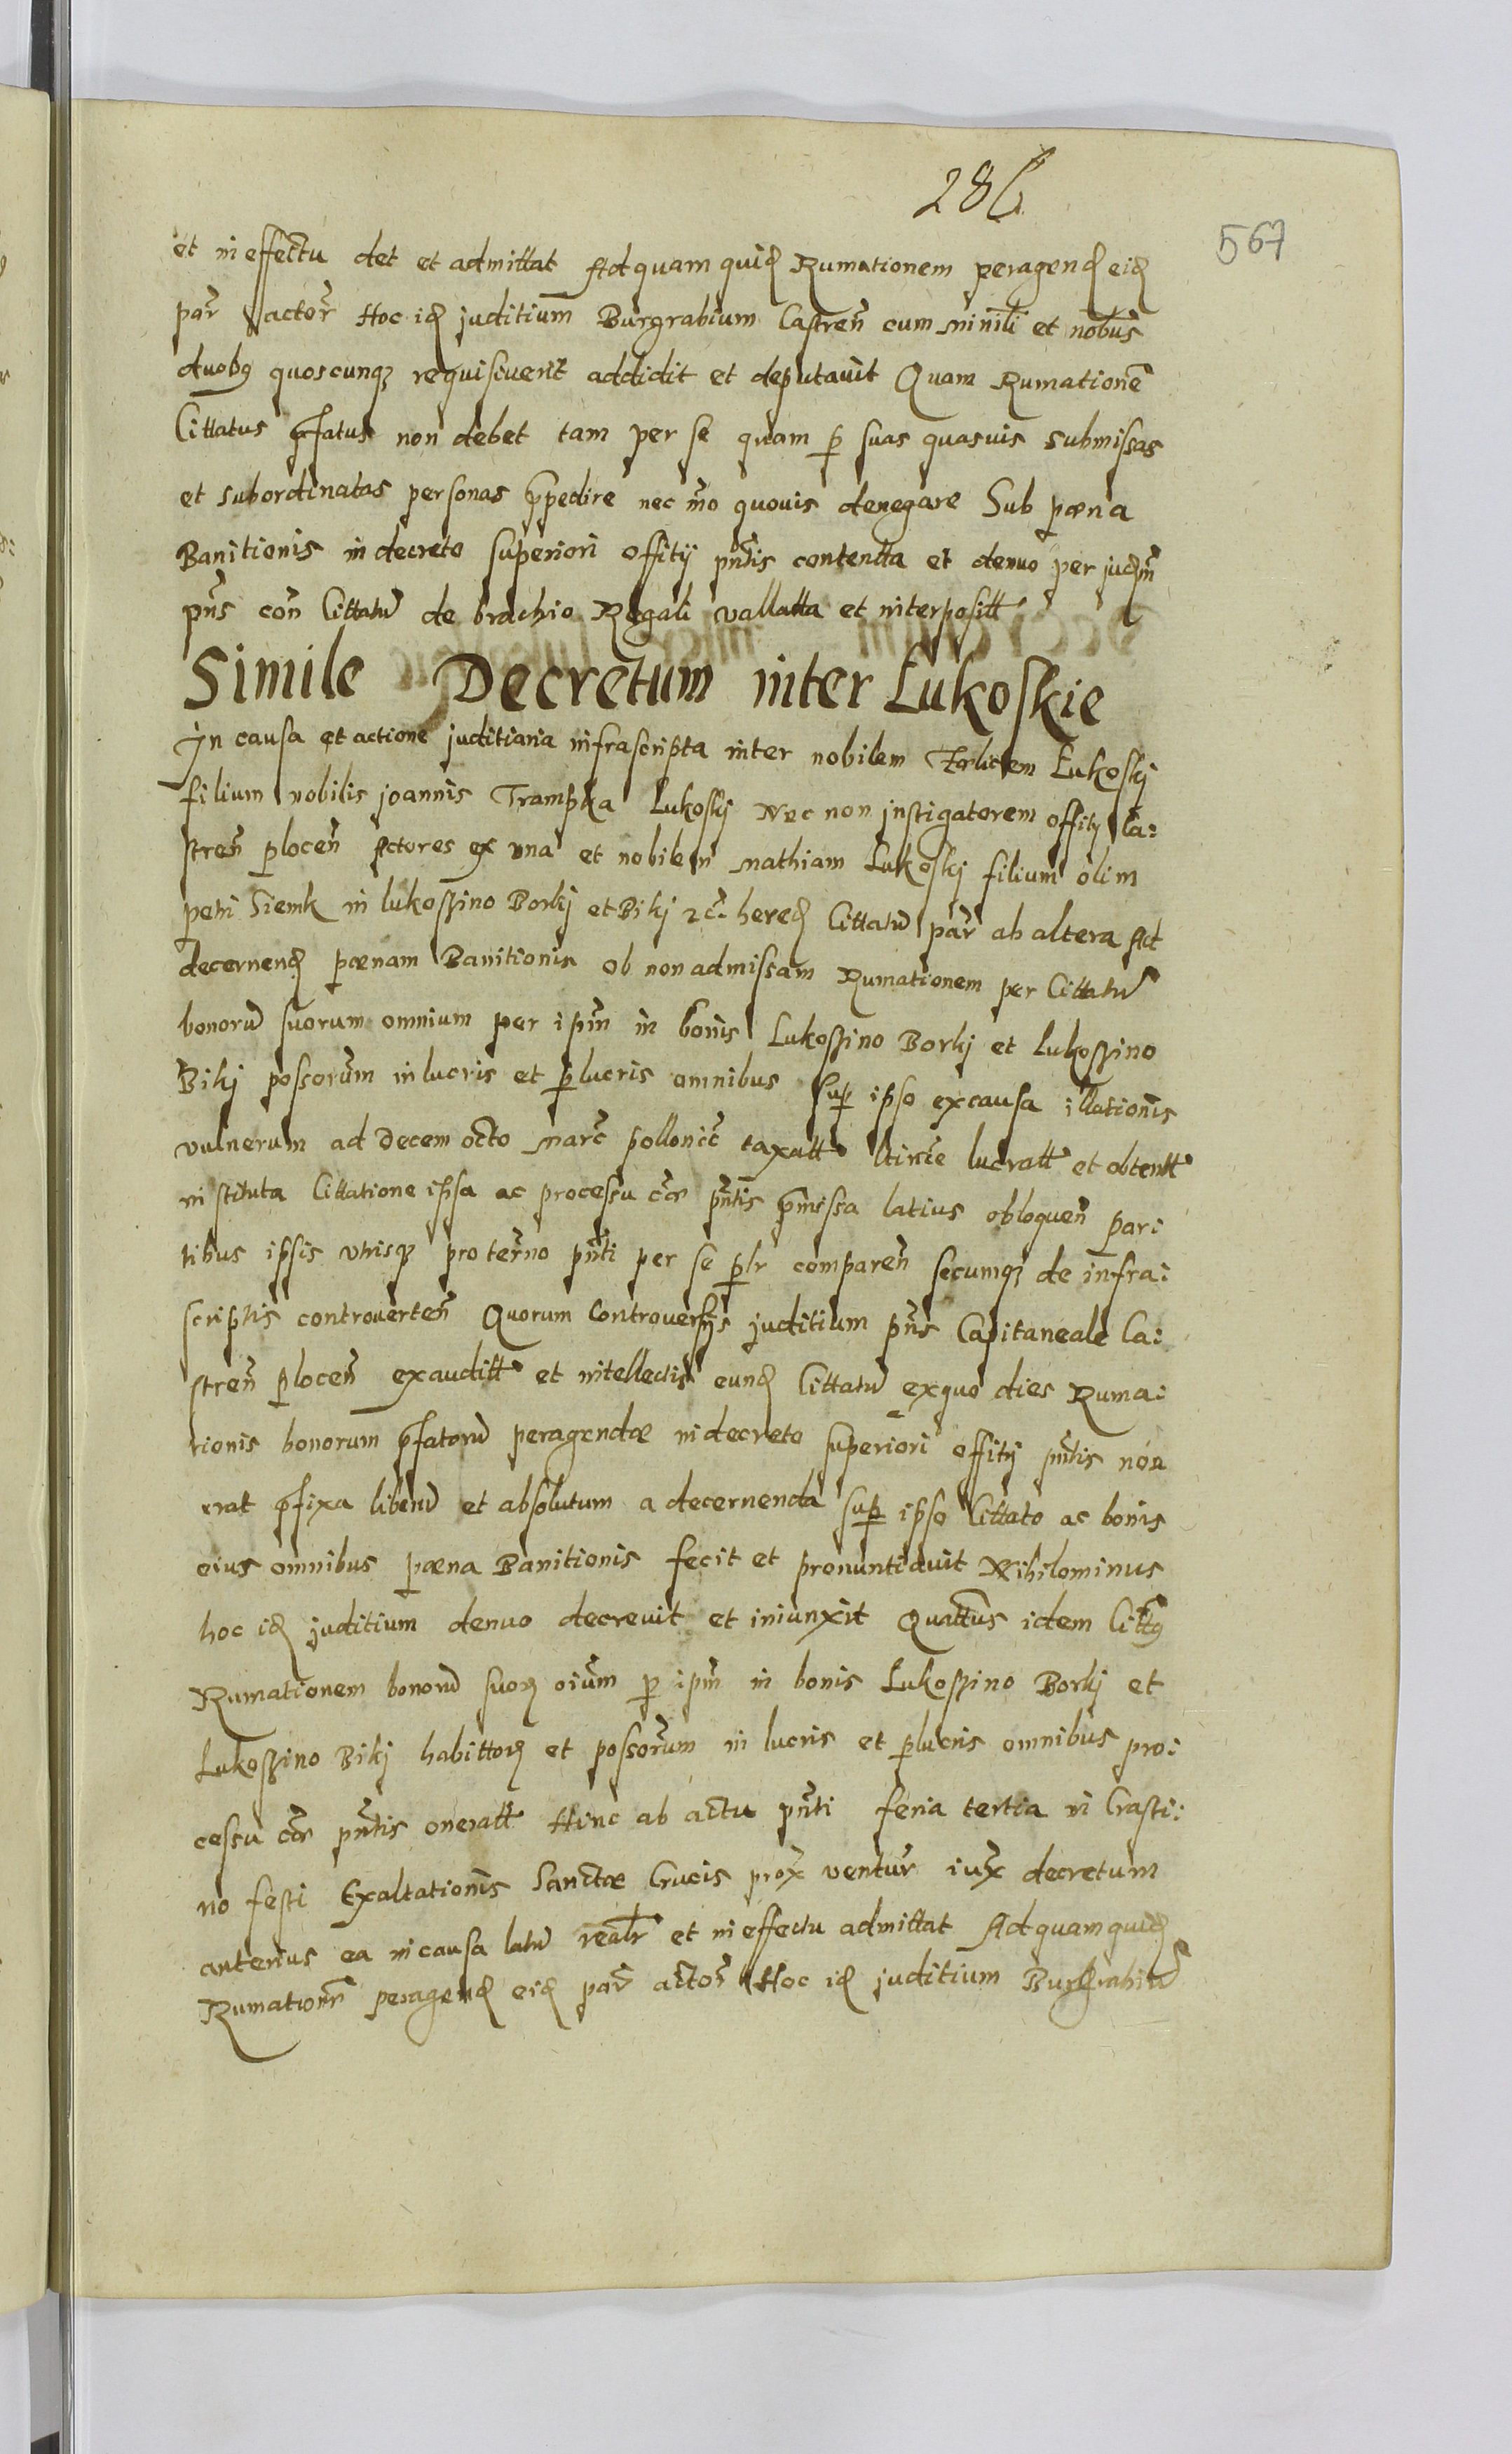 286
567
et in effectu det et admittat Ad quam quid Rumationem peragend eid
par actor Hoc id juditium Burgrabium Castren cum minili et nobus
duobus quoscunq requisiverit addidit et deputavit Quam Rumatione
Cittatus pfatus non debet tam per se quam p suas quasuis submissas
et subordinatas personas ppedire nec mo quouis denegare Sub pæna
Banitionis in decreto superiori offitij pntis contentta et denuo per judm
pns con Cittatu de brachio Regali vallatta et interpositt
Simile Decretum inter Lukoskie
In causa et actione juditiaria infrascripta inter nobilem Lukoskj
filium nobilis joannis Trampka Lukoskj Nec non jnstigatorem offitij Ca:
stren plocen Actores ex una et nobilem Mathiam Lukoskj filium olim
petri Siemk in lukoszino Borkj et Bikj etc hered Cittatu par ab altera Ad
decernend pœnam Banitionis ob non admissam Rumationem per Cittatu
bonoru suorum omnium per ipm in bonis Lukoszino Borkj et lukoszino
Bikj possorum in lucris et plucris omnibus sup ipso ex causa illationis
vulnerum ad decem octo marc pollonic taxatt lucratt et obtentt
instituta Cittatione ipsa ac processu cæ pntis pmissa latius obloquen par:
tibus ipsis utrisq pro termo pnti per se plr comparen secumq de infra:
scriptis controuerten Quorum Controuersijs juditium pns Capitaneale Ca:
stren plocen exauditt et intellectis eund Cittatu exquo dies Ruma:
tionis bonorum pfatoru peragendæ in decreto superiori offitij pntis non
erat pfixa liberu et absolutum a decernenda sup ipso Cittato ac bonis
eius omnibus pæna Banitionis fecit et pronuntiavit Nihilominus
hoc id juditium denuo decrevit et iniunxit Quattus idem Cittus
Rumationem bonoru suor oium p ipm in bonis Lukoszino Borkj et
Lukoszino Bikj habittor et possorum in lucris et plucris omnibus pro:
cessu cæ pntis oneratt Hinc ab actu pnti feria tertia in Crasti:
no festi Exaltationis Sanctæ Crucis prox ventur iux decretum
anterius ea in causa latu realr et in effectu admittat Ad quam quid
Rumatione peragend eid par actor Hoc id juditium Burgrabiu